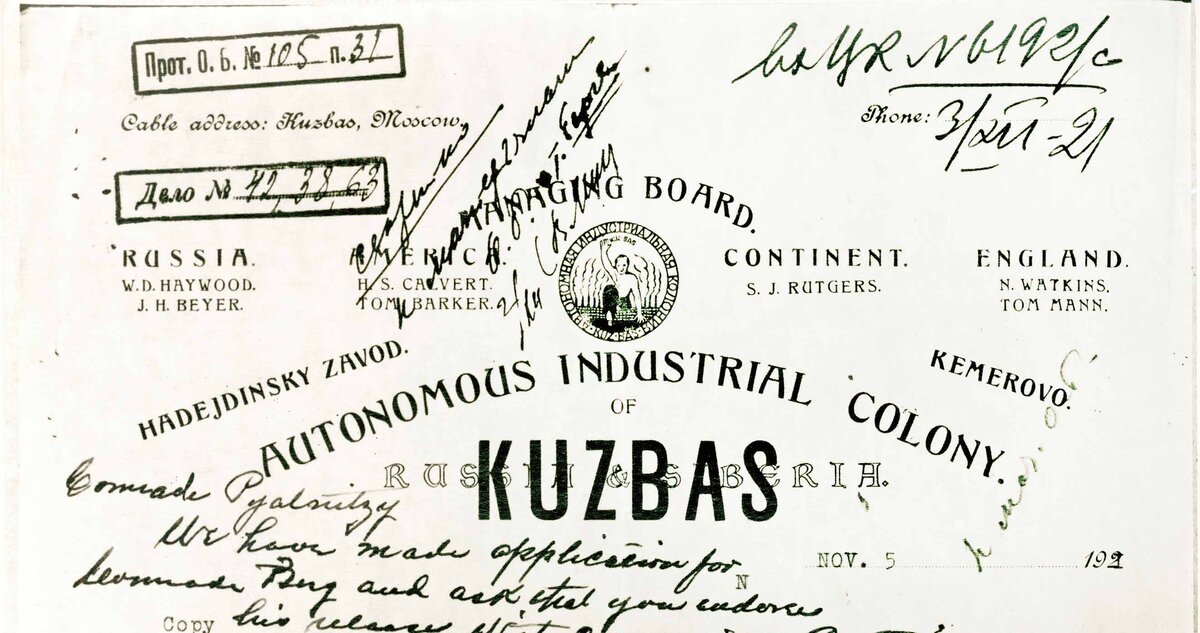 Прот. О. Б. № 105 п. 31
вх ЦК № 6192/с
Cable address: Kuzbas, Moscow.
Phone:
3/XII-21
Дело № 42, 38, 63
MANAGING BOARD.
RUSSIA.
W. D. HAYWOOD.
J. H. BEYER.
AMERICA.
H. S. CALVERT.
TOM BARKER.
АВТОНОМНАЯ ИНДУСТРИАЛЬНАЯ КОЛОНИЯ
KUZBAS
CONTINENT.
S. J. RUTGERS.
ENGLAND.
N. WATKINS.
TOM MANN.
HADEJDINSKY ZAVOD.
KEMEROVO.
AUTONOMOUS INDUSTRIAL COLONY.
OF
KUZBAS
RUSSIA & SIBERIA.
Comrade Pyatnitzy
We have made application for
NOV. 5 1921
N
Comrade Berg and ask that you endorse
Copy
his release